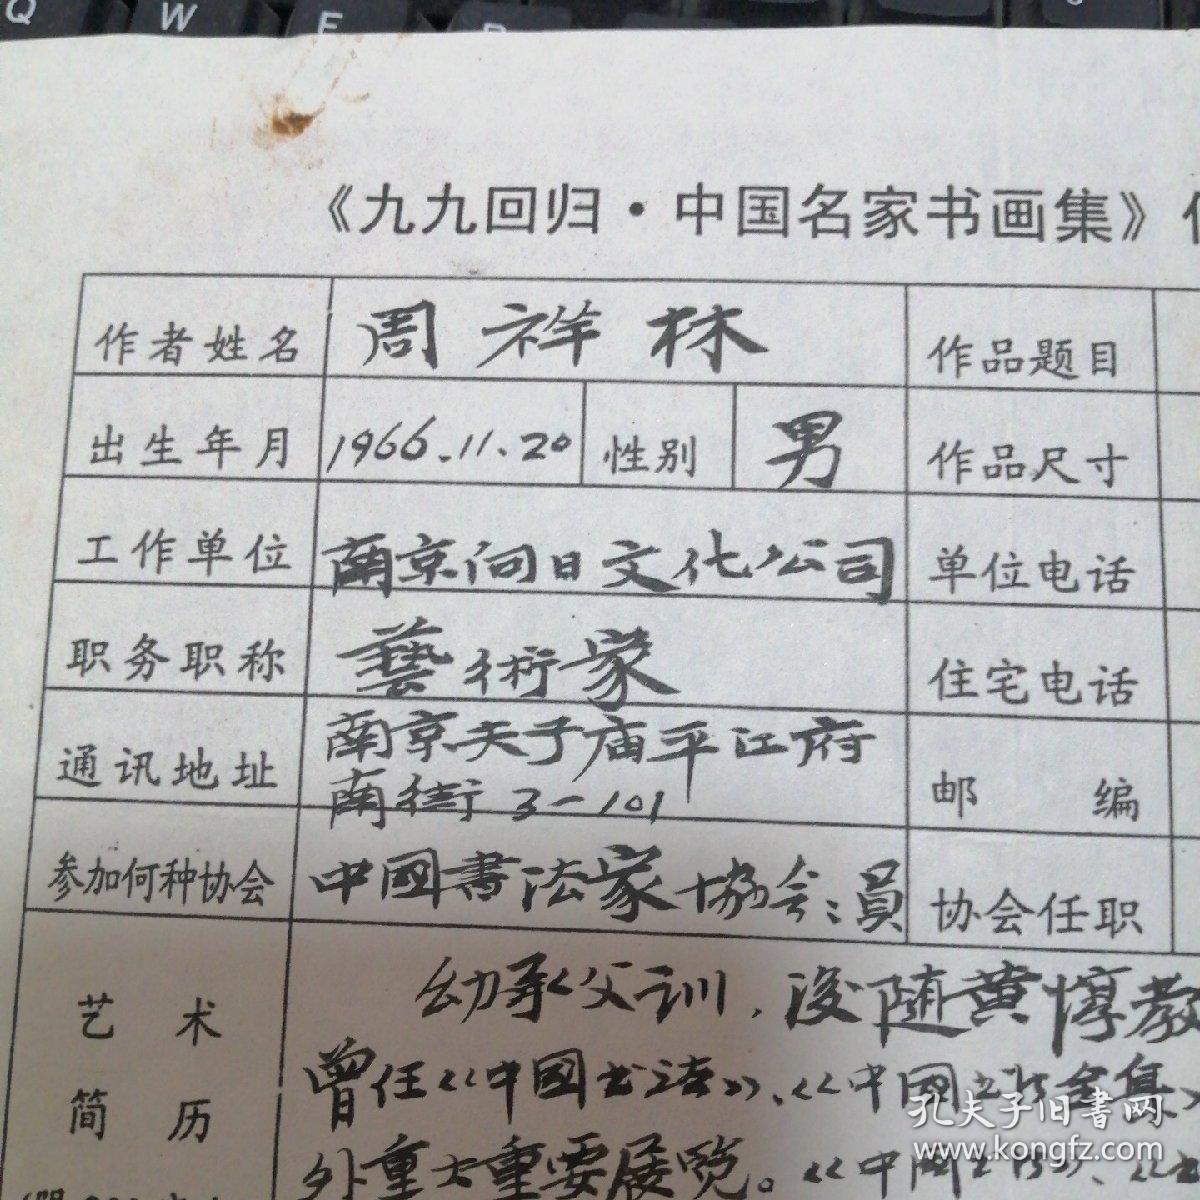 Q W E
《九九回归·中国名家书画集》
作者姓名 周祥林 作品题目
出生年月 1966.11.20 性别 男 作品尺寸
工作单位 南京向日文化公司 单位电话
职务职称 藝術家 住宅电话
通讯地址 南京夫子庙平江府
南街3-101 邮编
参加何种协会 中國書法家協会会員 协会任职
艺术
简历
幼承父训,后随黄惇教
曾任《中國书法》、《中國书法全集》
外重大重要展览。《中國书法》、
孔夫子旧書网
www.kongfz.com